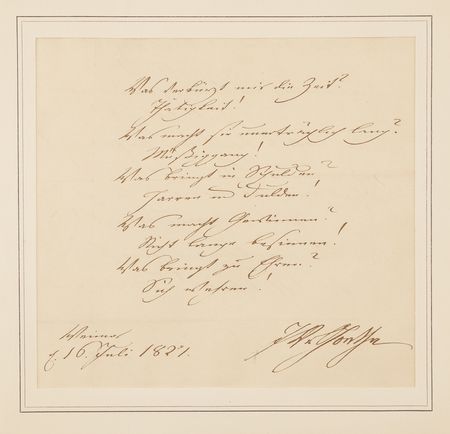 Was verkürzt mir die Zeit?
Thätigkeit!
Was macht sie unerträglich lang?
Müßiggang!
Was bringt in Schulden?
Harren u Dulden!
Was macht Gewinnen?
Nicht lange besinnen!
Was bringt zu Ehren?
Sich wehren!
Weimar
d. 16. Juli 1821.
JWvGoethe